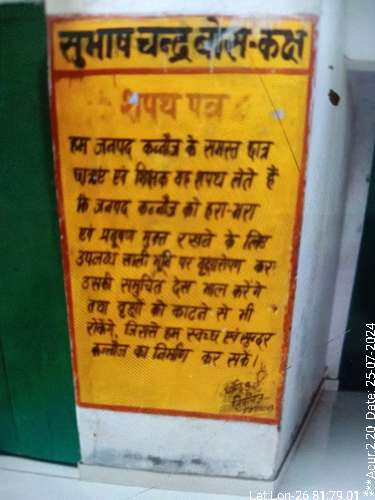 सुभाष चन्द्र बोस-कक्ष
शपथ पत्र
हम जनपद कन्नौज के समस्त छात्र
छात्राएं एवं शिक्षक यह शपथ लेते हैं
कि जनपद कन्नौज को हरा-भरा
एवं प्रदूषण मुक्त रखने के लिए
उपलब्ध खाली भूमि पर वृक्षारोपण कर।
उसकी समुचित देख भाल करेंगे
तथा वृक्षों को काटने से भी
रोकेंगे, जिससे हम स्वच्छ एवं सुन्दर
कन्नौज का निर्माण कर सकें।
Lat Lon-26.81:79.01 ***Acur:2.20 Date: 25-07-2024